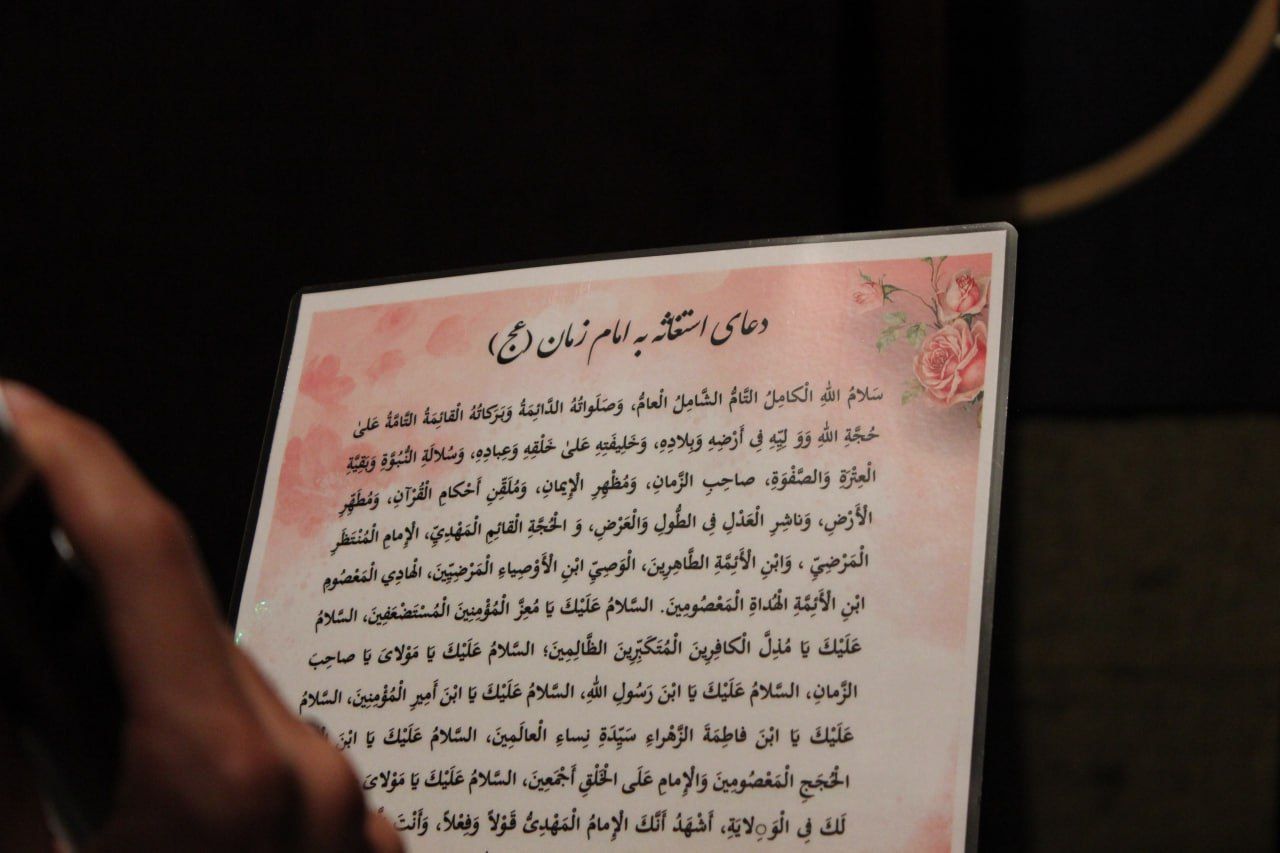 دعای استغاثه به امام زمان (عج)
سَلامُ اللهِ الْكامِلُ التَّامُّ الشَّامِلُ الْعامُّ، وَصَلَواتُهُ الدَّائِمَةُ وَبَرَكاتُهُ الْقائِمَةُ التَّامَّةُ عَلىٰ
حُجَّةِ اللهِ وَوَ لِيِّهِ فِي أَرْضِهِ وَبِلادِهِ، وَخَلِيفَتِهِ عَلىٰ خَلْقِهِ وَعِبادِهِ، وَسُلالَةِ النُّبُوَّةِ وَبَقِيَّةِ
الْعِتْرَةِ وَالصَّفْوَةِ، صاحِبِ الزَّمانِ، وَمُظْهِرِ الْإِيمانِ، وَمُلَقِّنِ أَحْكامِ الْقُرْآنِ، وَمُطَهِّرِ
الْأَرْضِ، وَناشِرِ الْعَدْلِ فِي الطُّولِ وَالْعَرْضِ، وَ الْحُجَّةِ الْقائِمِ الْمَهْدِيِّ، الْإِمامِ الْمُنْتَظَرِ
الْمَرْضِيِّ ، وَابْنِ الْأَئِمَّةِ الطَّاهِرِينَ، الْوَصِيِّ ابْنِ الْأَوْصِياءِ الْمَرْضِيِّينَ، الْهادِي الْمَعْصُومِ
ابْنِ الْأَئِمَّةِ الْهُداةِ الْمَعْصُومِينَ. السَّلامُ عَلَيْكَ يَا مُعِزَّ الْمُؤْمِنِينَ الْمُسْتَضْعَفِينَ، السَّلامُ
عَلَيْكَ يَا مُذِلَّ الْكافِرِينَ الْمُتَكَبِّرِينَ الظَّالِمِينَ؛ السَّلامُ عَلَيْكَ يَا مَوْلاىَ يَا صاحِبَ
الزَّمانِ، السَّلامُ عَلَيْكَ يَا ابْنَ رَسُولِ اللهِ، السَّلامُ عَلَيْكَ يَا ابْنَ أَمِيرِ الْمُؤْمِنِينَ، السَّلامُ
عَلَيْكَ يَا ابْنَ فاطِمَةَ الزَّهْراءِ سَيِّدَةِ نِساءِ الْعالَمِينَ، السَّلامُ عَلَيْكَ يَا ابْنَ
الْحُجَجِ الْمَعْصُومِينَ وَالْإِمامِ عَلَى الْخَلْقِ أَجْمَعِينَ، السَّلامُ عَلَيْكَ يَا مَوْلاىَ
لَكَ فِي الْوَِلايَةِ، أَشْهَدُ أَنَّكَ الْإِمامُ الْمَهْدِىُّ قَوْلاً وَفِعْلاً، وَأَنْتَ